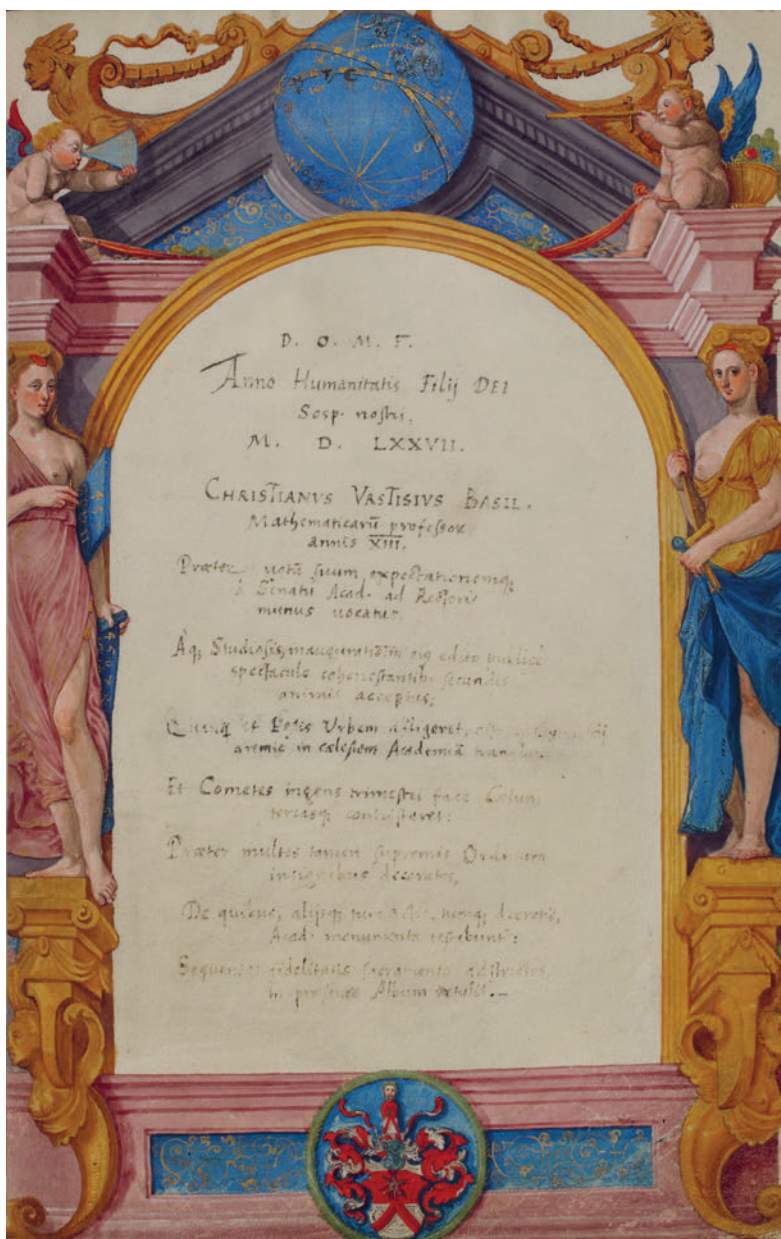 D. O. M. F.
Anno Humanitatis Filij DEI
Sosp. nostri,
M. D. LXXVII.
CHRISTIANVS VRSTISIVS BASIL.
Mathematicarū professor
annis XIII.
Præter votū suum, expectationemq;
à Senatu Acad. ad Rectoris
munus vocatus,
Aq; Studiosis, edito publicè
spectaculo cohonestantib. secundis
animis acceptus,
et Pestis Urbem affligeret,
in cœlestem Academiā
Et Cometes ingens trimestri face Cœlum
terrasq;
Præter multos tamen supremis Ordinum
insignibus decoratos,
De quibus, alijsq; decretis,
Acad. monumenta
Sequentes fidelitatis sacramento adstrictos,
Album retulit.